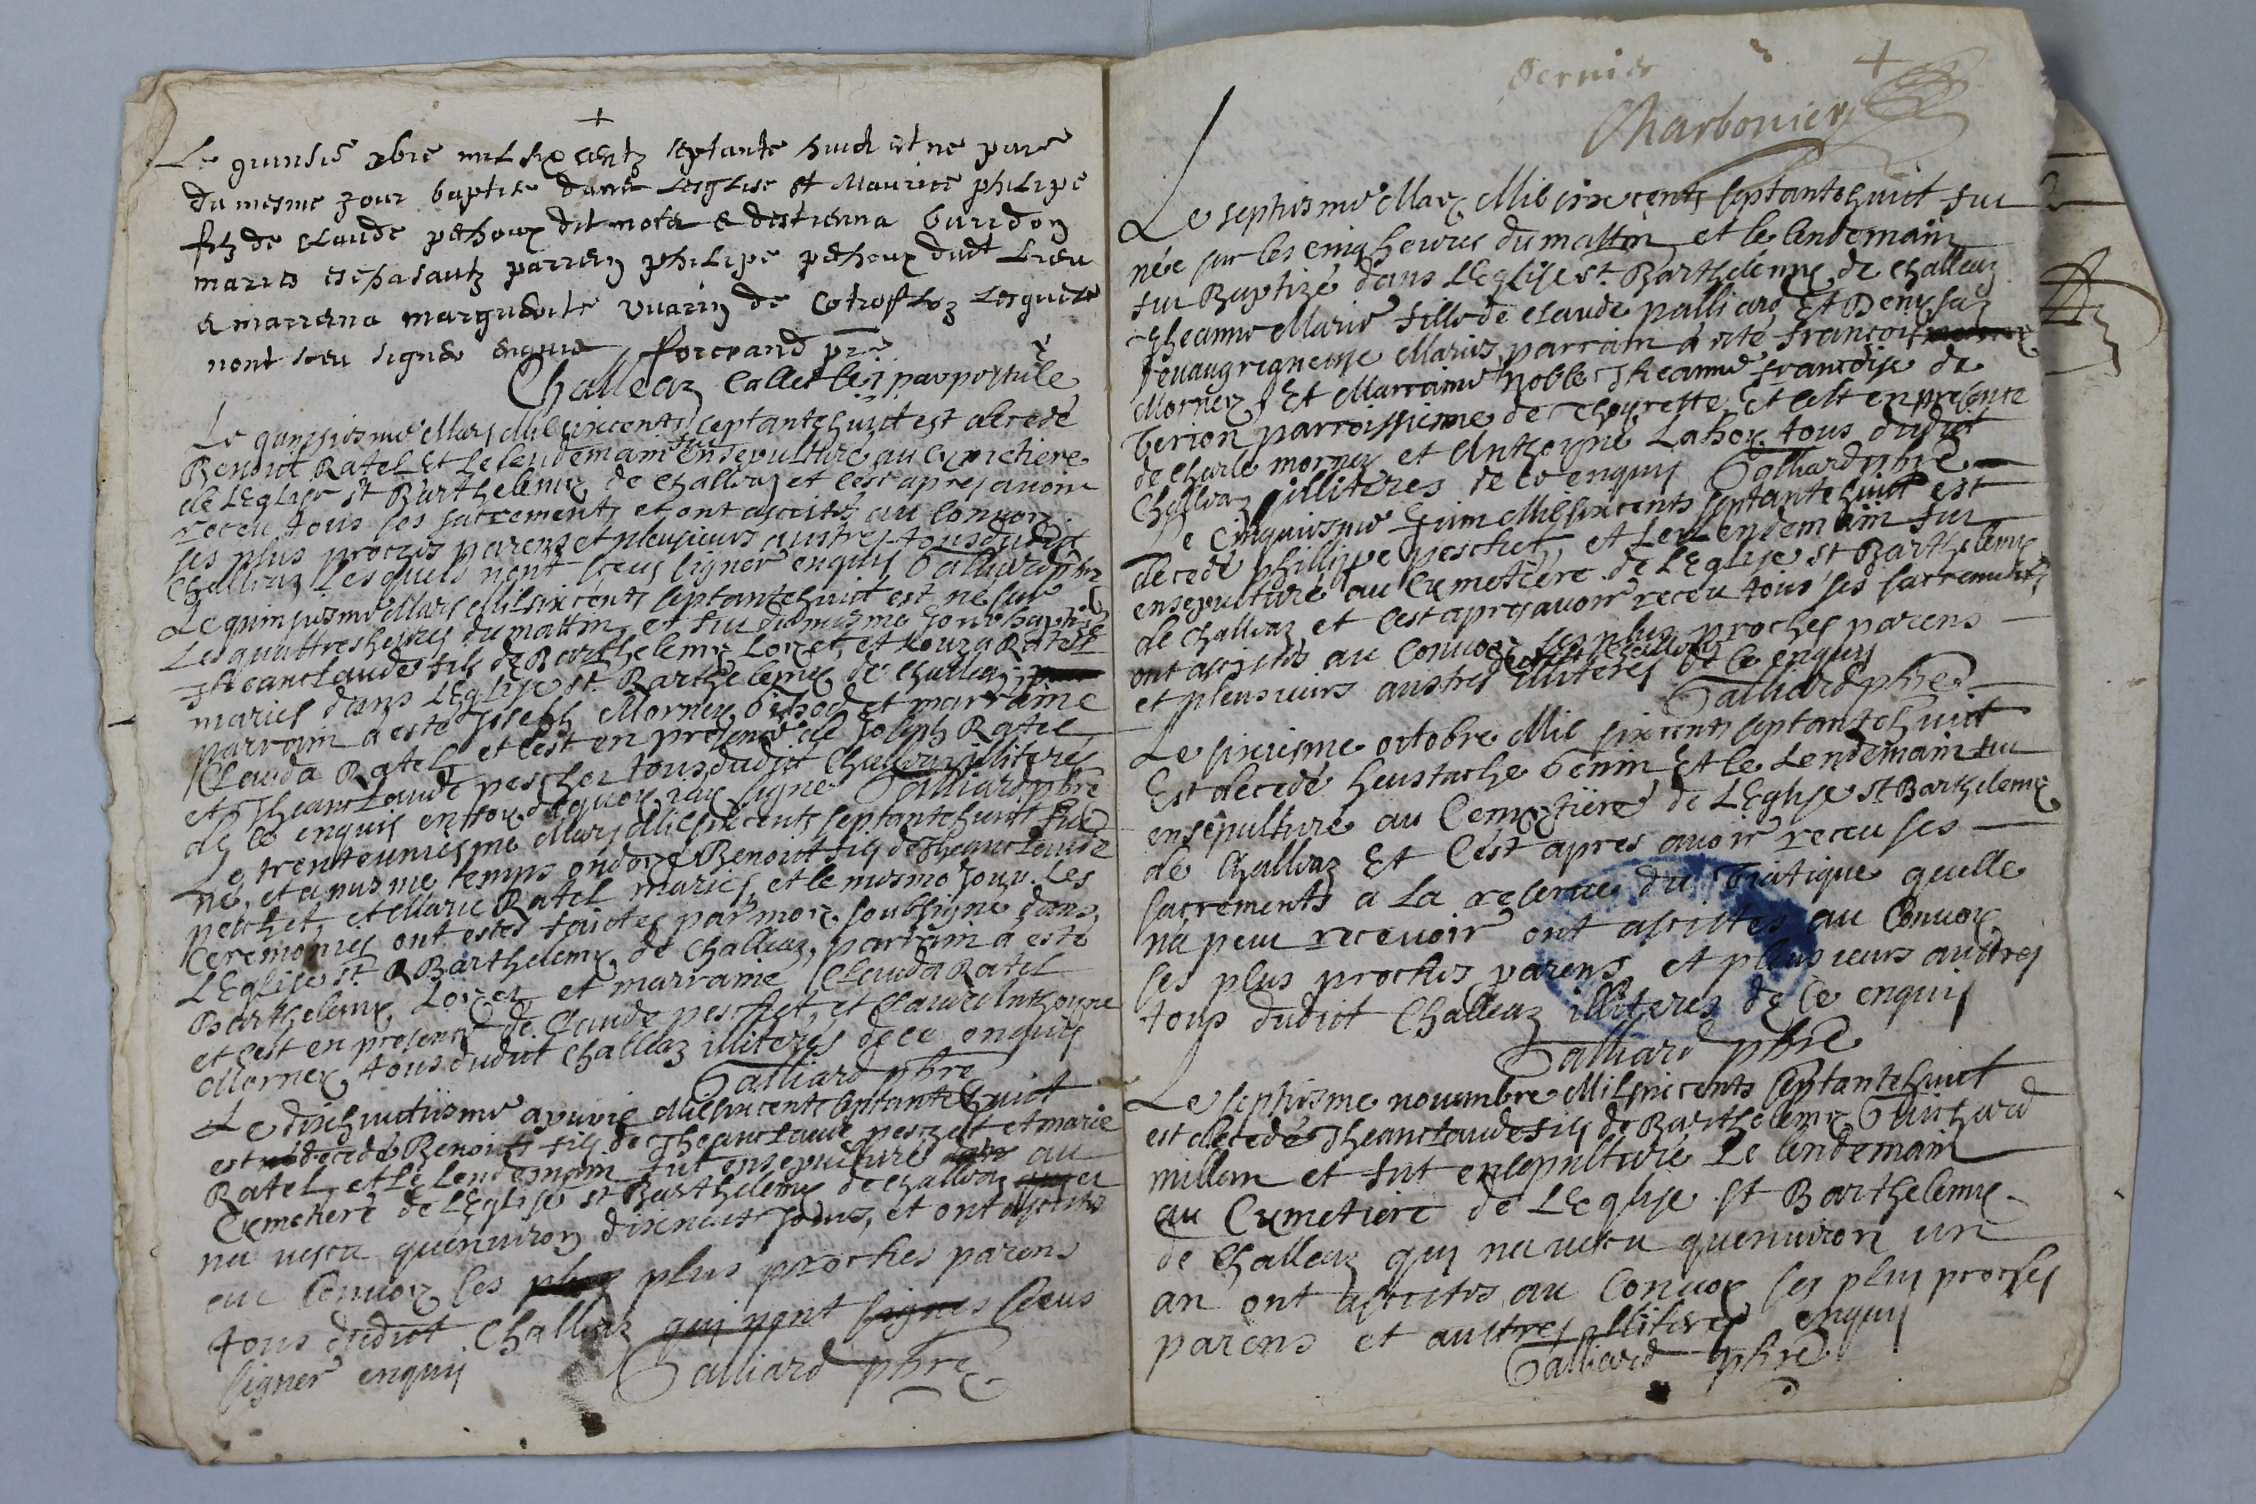 +
Le quinsie xbre mil six centz septante huict est ne pare
du mesme jour baptise dans Lesglise st Maurice philipe
filz de Claude pethoux dit mola e destienna buridon
maries parrein philipe pethoux dudt Lieu
e marrena marguerite vuarin de Lesquelz
nont sceu signer enquis forerand pre
Challeaz
Le quinsiesme Mars Mil sixcents septantehuict est decedé
Benoict Ratel Et le lendemain fut ensepulturé au Cymetiere
de LEglise St Barthelemy de Challeaz et cest apres avoir
receu tous ses sacrements et ont assistés au Convoy
ses plus proches parens et pleusieurs austres tous dudict
Challeaz Lesquels nont sceus signer enquis Galliard pbre
Le quinsiesme Mars Milsixcents septantehuict est né sur
Les quattres heures du mattin et fut du mesme jour baptisé
Jheanclaude fils de Barthelemy Loyet et Louyza Ratel
mariés dans LEglise St Barthelemy de Challeaz
parrain a esté Joseph Morney et marraine
Clauda Ratel et cest en presence de Joseph Ratel
et Jheanclaude peschet tous dudict Challeaz illiteres
de ce enquis en foy dequoy jay signé Galliard pbre
Le trenteuniesme Mars Milsixcents septantehuict fut
né, et a mesme temps ondoyé Benoict fils de Jheanclaude
peschet et Marie Ratel mariés, et le mesme jour Les
Ceremonies ont estés faictes par moy soubsigné dans
LEglise St Barthelemy de Challeaz, parrain a esté
Barthelemy Loyet et marraine Clauda Ratel
et cest en presence de Claude peschet, et Claude Anthoyne
Morney tous dudict Challeaz illiteres de ce enquis
Galliard pbre
Le dixhuictiesme apvril Milsixcents septantehuict
est decedé Benoict fils de Jheanclaude peschet et marie
Ratel et Le Lendemain fut ensepulturé au
Cymetiere de LEglise St Barthelemy de Challeaz
na vescu quenviron dixneuf jours, et ont assistés
au Convoy ses plus proches parens
tous dudict Challeaz qui nont sceus
signer enquis Galliard pbre
dernier +
Charbonier
Le septiesme May Mil sixcents septantehuict fut
née sur les cinq heures du mattin et le lendemain
fut Baptizé dans LEglise St Barthelemy de Challeaz
Jheanne Marie fille de Claude palliard Et Denysa
Mariés parrain a esté françois
Morney Et Marraine Noble Jheanne françoise de
parroissienne de Thoyrette Et cest en presence
de Charle morney et Anthoyne Lahoy tous dudict
Challeaz illiteres de ce enquis Galliard pbre
Le Cinquiesme Juin Milsixcents septantehuict est
decedé phillippe peschet, et Le Lendemain fut
ensepulturé au Cymetiere de LEglise St Barthelemy
de Challeaz et cest apres avoir receu tous ses sacrements
ont assistés au Convoy ses plus proches parens
et pleusieurs austres dudict Challeaz illiteres de ce enquis
Galliard pbre
Le sixiesme octobre Mil sixcents septantehuict
Est decedé heustache Genin Et le Lendemain fut
ensepulturé au Cemettiere de LEglise St Barthelemy
de Challeaz Et Cest apres avoir receu ses
sacrements a La reserve du Viatique quelle
na peu recevoir ont assistés au Convoy
ses plus proches parens et pleusieurs austres
tous dudict Challeaz illiteres de Ce enquis
Galliard pbre
Le septiesme novembre Milsixcents septantehuict
est decedé Jheanclaude fils de Barthelemy Guichard
millan et fut ensepulturé Le lendemain
au Cymetiere de LEglise St Barthelemy
de Challeaz qui na vescu quenviron un
an ont assistés au Convoy ses plus proches
parens et austres illiteres enquis
Galliard pbre